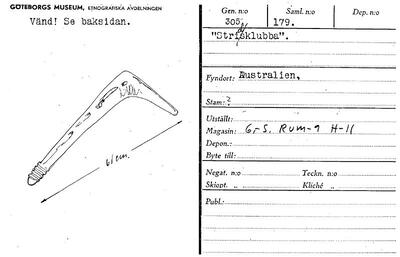 GÖTEBORGS MUSEUM, ETNOGRAFISKA AVDELNINGEN
Vänd! Se baksidan.
61 cm.
Gen. n:o Saml. n:o Dep. n:o
305 179.
"Stridsklubba".
Fyndort: Australien,
Stam: ?
Utställt:
Magasin: G-S. Rum-9 H-11
Depon.:
Byte till:
Negat. n:o Teckn. n:o
Skiopt. „ Kliché „
Publ.: